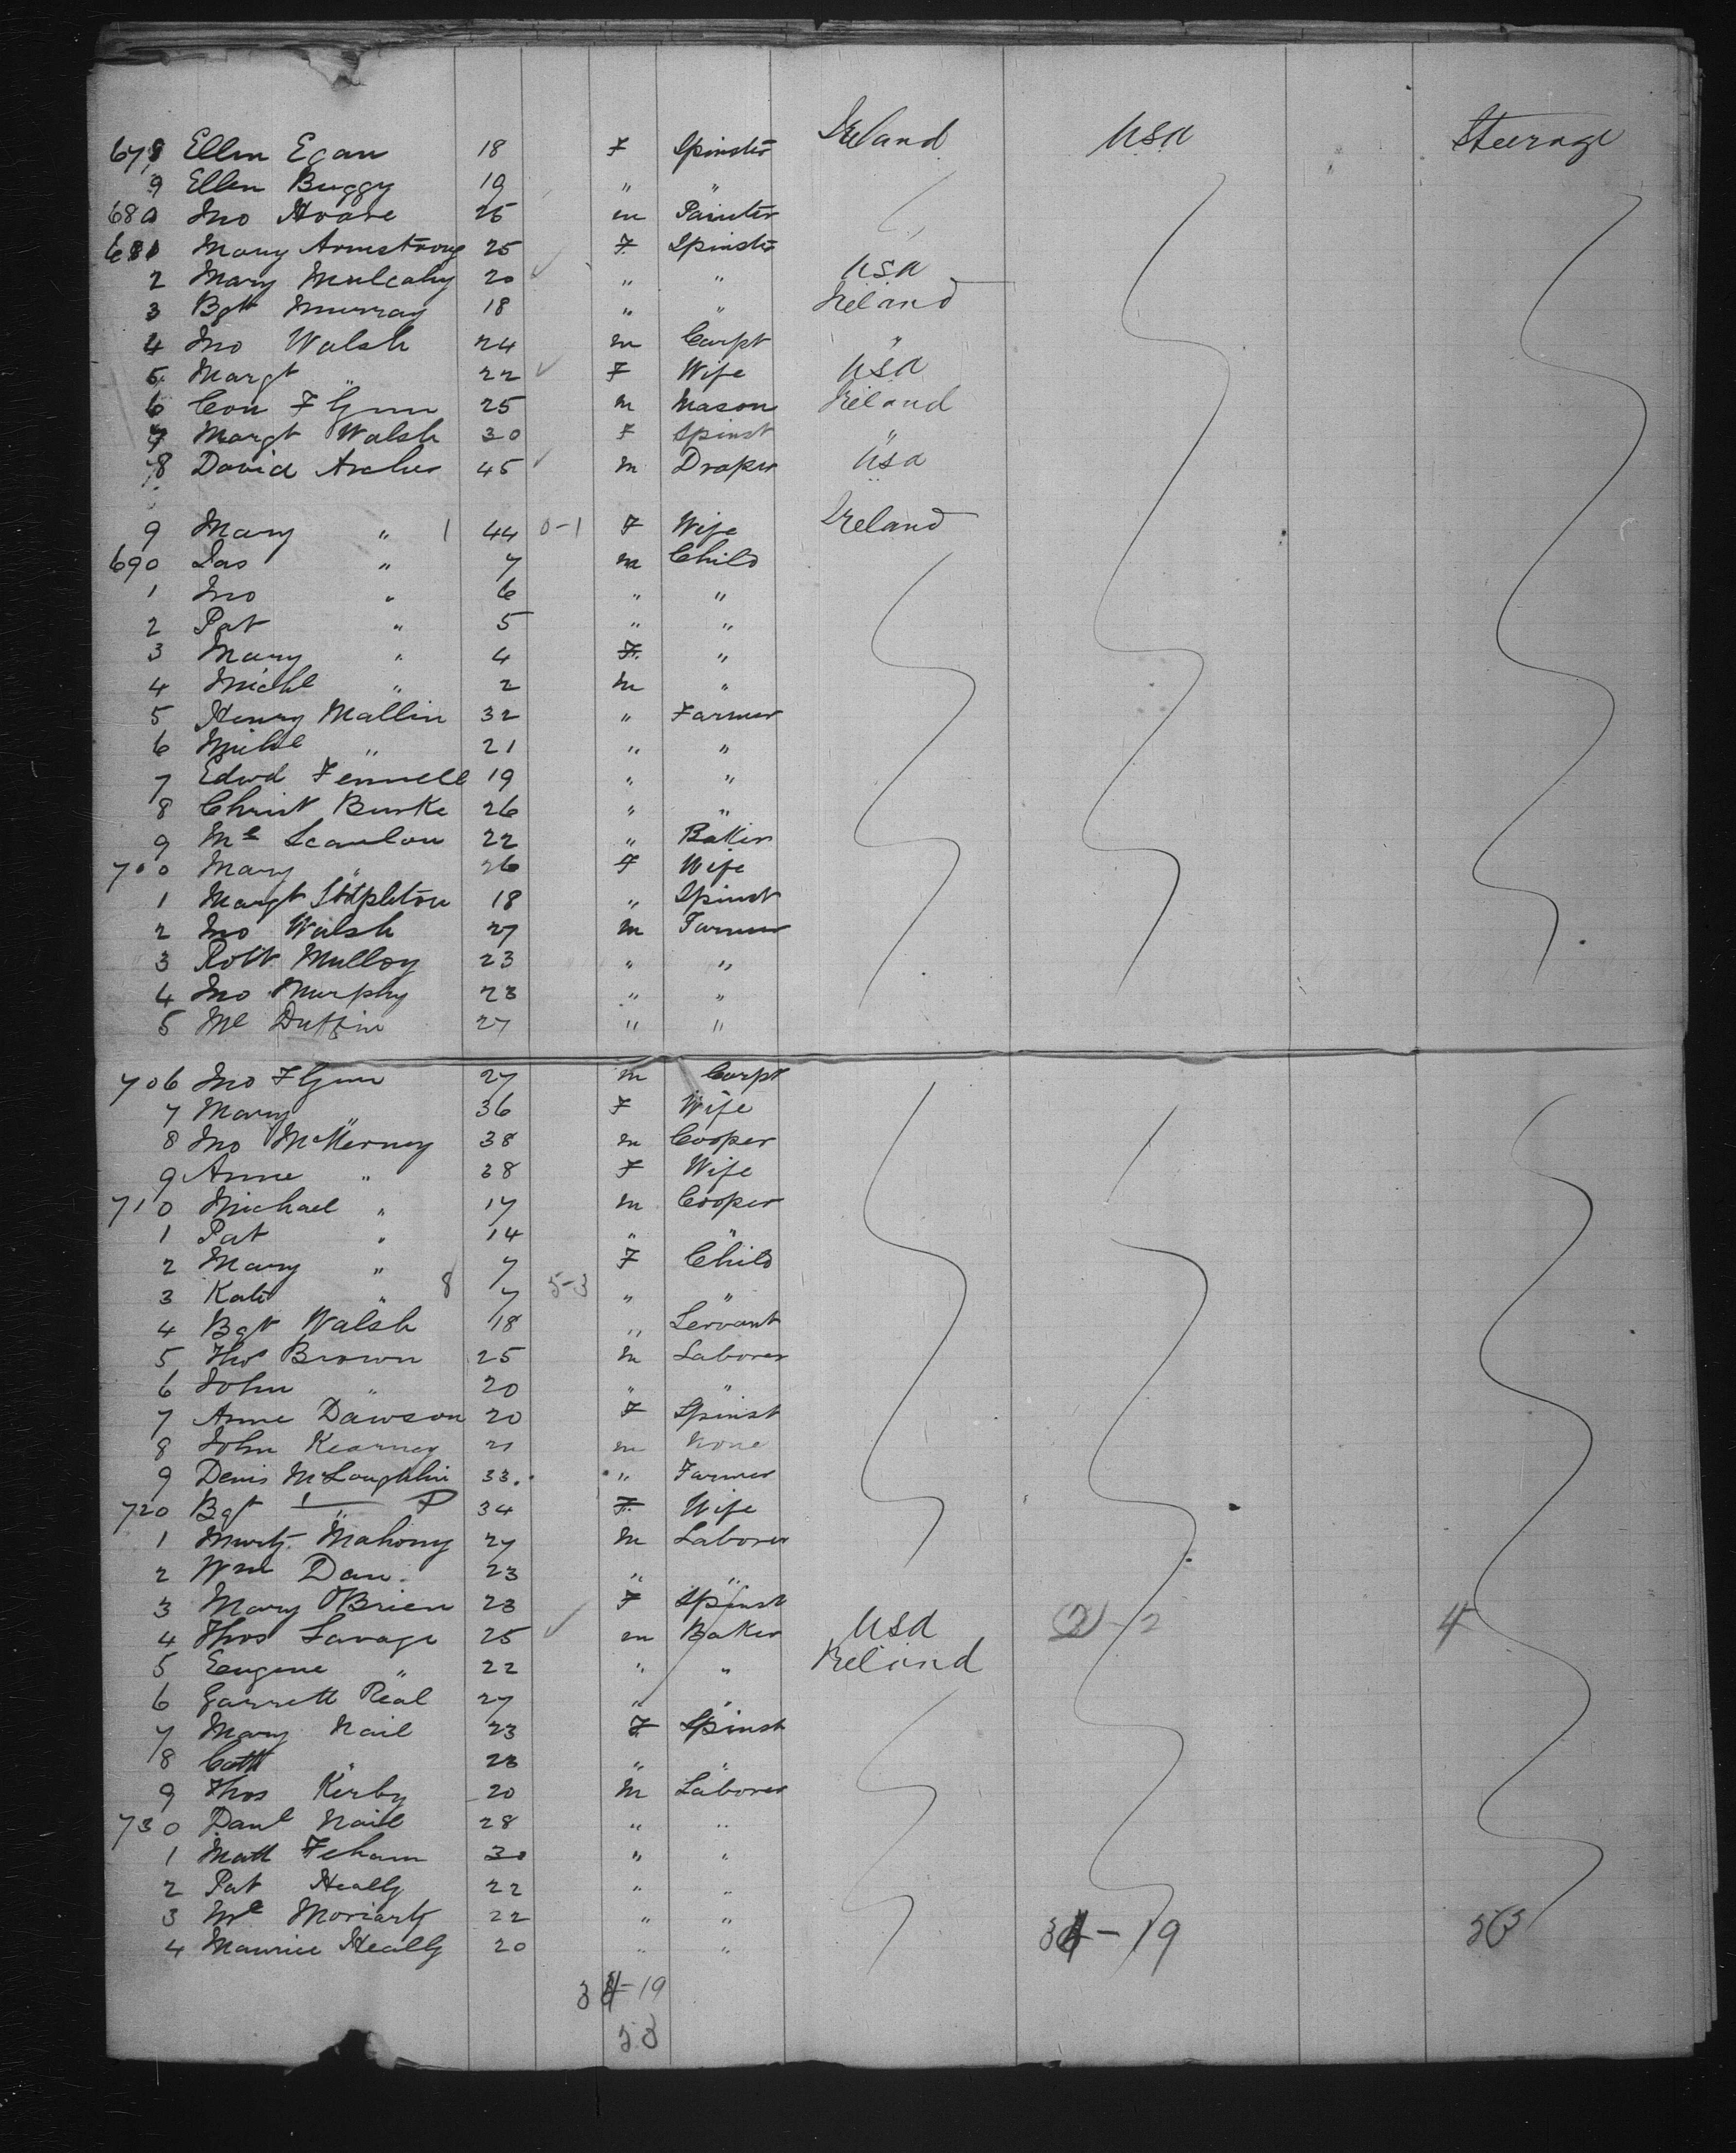 678 Ellen Egan 18 F Spinster Ireland USA Steerage
9 Ellen Buggy 19 " "
680 Jno Hoare 25 m Painter
681 Mary Armstrong 25 F Spinster
2 Mary Mulcahy 20 ✓ " " USA
3 Bgt Murray 18 " " Ireland
4 Jno Walsh 24 m Carpt "
5 Margt " 22 ✓ F Wife USA
6 Con Flynn 25 m Mason Ireland
7 Margt Walsh 30 F Spinst "
8 David Archer 45 ✓ m Draper USA
9 Mary " 1 44 0-1 F Wife Ireland
690 Jas " 7 m Child
1 Jno " 6 " "
2 Pat " 5 " "
3 Mary " 4 F "
4 Michl " 2 m "
5 Henry Mallin 32 " Farmer
6 Michl " 21 " "
7 Edwd Fennell 19 " "
8 Christ Burke 26 " "
9 Ml Scanlon 22 " Baker
700 Mary " 26 F Wife
1 Margt Stapleton 18 " Spinst
2 Jno Walsh 27 m Farmer
3 Robt Mulloy 23 " "
4 Jno Murphy 23 " "
5 Ml Duffin 27 " "
706 Jno Flynn 27 m Carpt
7 Mary " 36 F Wife
8 Jno McKerney 38 m Cooper
9 Anne " 38 F Wife
710 Michael " 17 m Cooper
1 Pat " 14 " "
2 Mary " 7 F Child
3 Kate " 8 7 5-3 " "
4 Bgt Walsh 18 " Servant
5 Thos Brown 25 m Laborer
6 John " 20 " "
7 Anne Dawson 20 F Spinst
8 John Kearney 21 m None
9 Denis McLoughlin 33 " Farmer
720 Bgt " 34 F Wife
1 Murty Mahony 27 m Laborer
2 Wm Dan 23 " "
3 Mary OBrien 23 F Spinst
4 Thos Savage 25 ✓ m Baker USA 2-2 4
5 Eugene " 22 " " Ireland
6 Garrett Real 27 " "
7 Mary Nail 23 F Spinst
8 Cath " 23 " "
9 Thos Kirby 20 m Laborer
730 Danl Nail 28 " "
1 Matt Feham 30 " "
2 Pat Healy 22 " "
3 Ml Moriarty 22 " "
4 Maurice Healy 20 " "
34-19 53
34-19
53